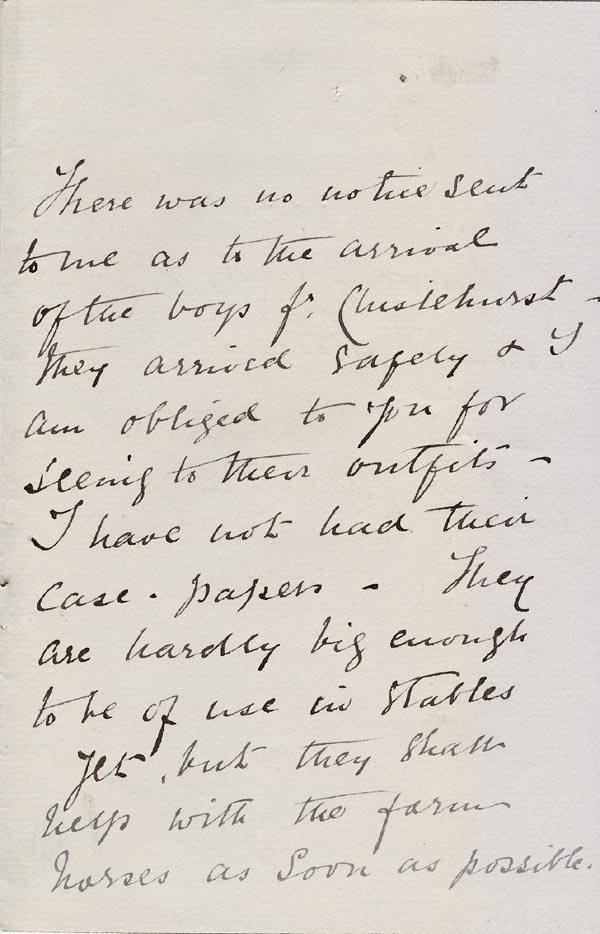 There was no notice sent
to me as to the arrival
of the boys fr. Chislehurst -
they arrived safely & I
am obliged to you for
seeing to their outfits -
I have not had their
case-papers - They
are hardly big enough
to be of use in stables
yet, but they shall
help with the farm
horses as soon as possible.